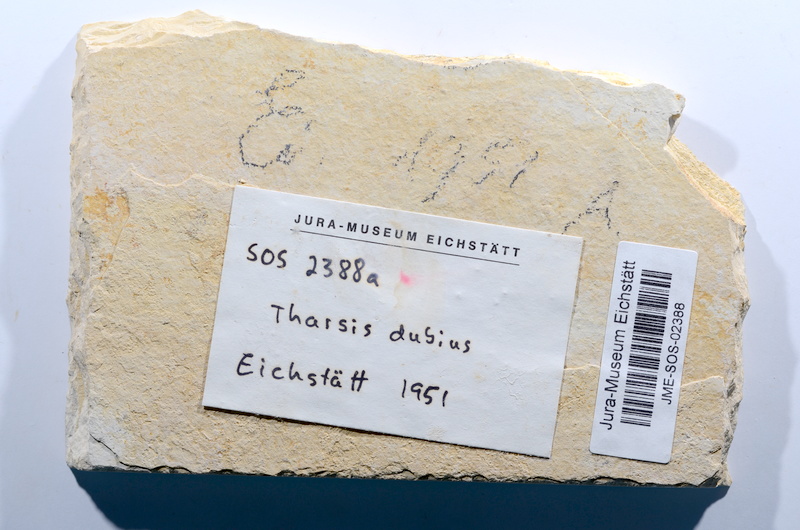 Ei. 1951 A
JURA-MUSEUM EICHSTÄTT
SOS 2388a
Tharsis dubius
Eichstätt 1951
Jura-Museum Eichstätt
JME-SOS-02388